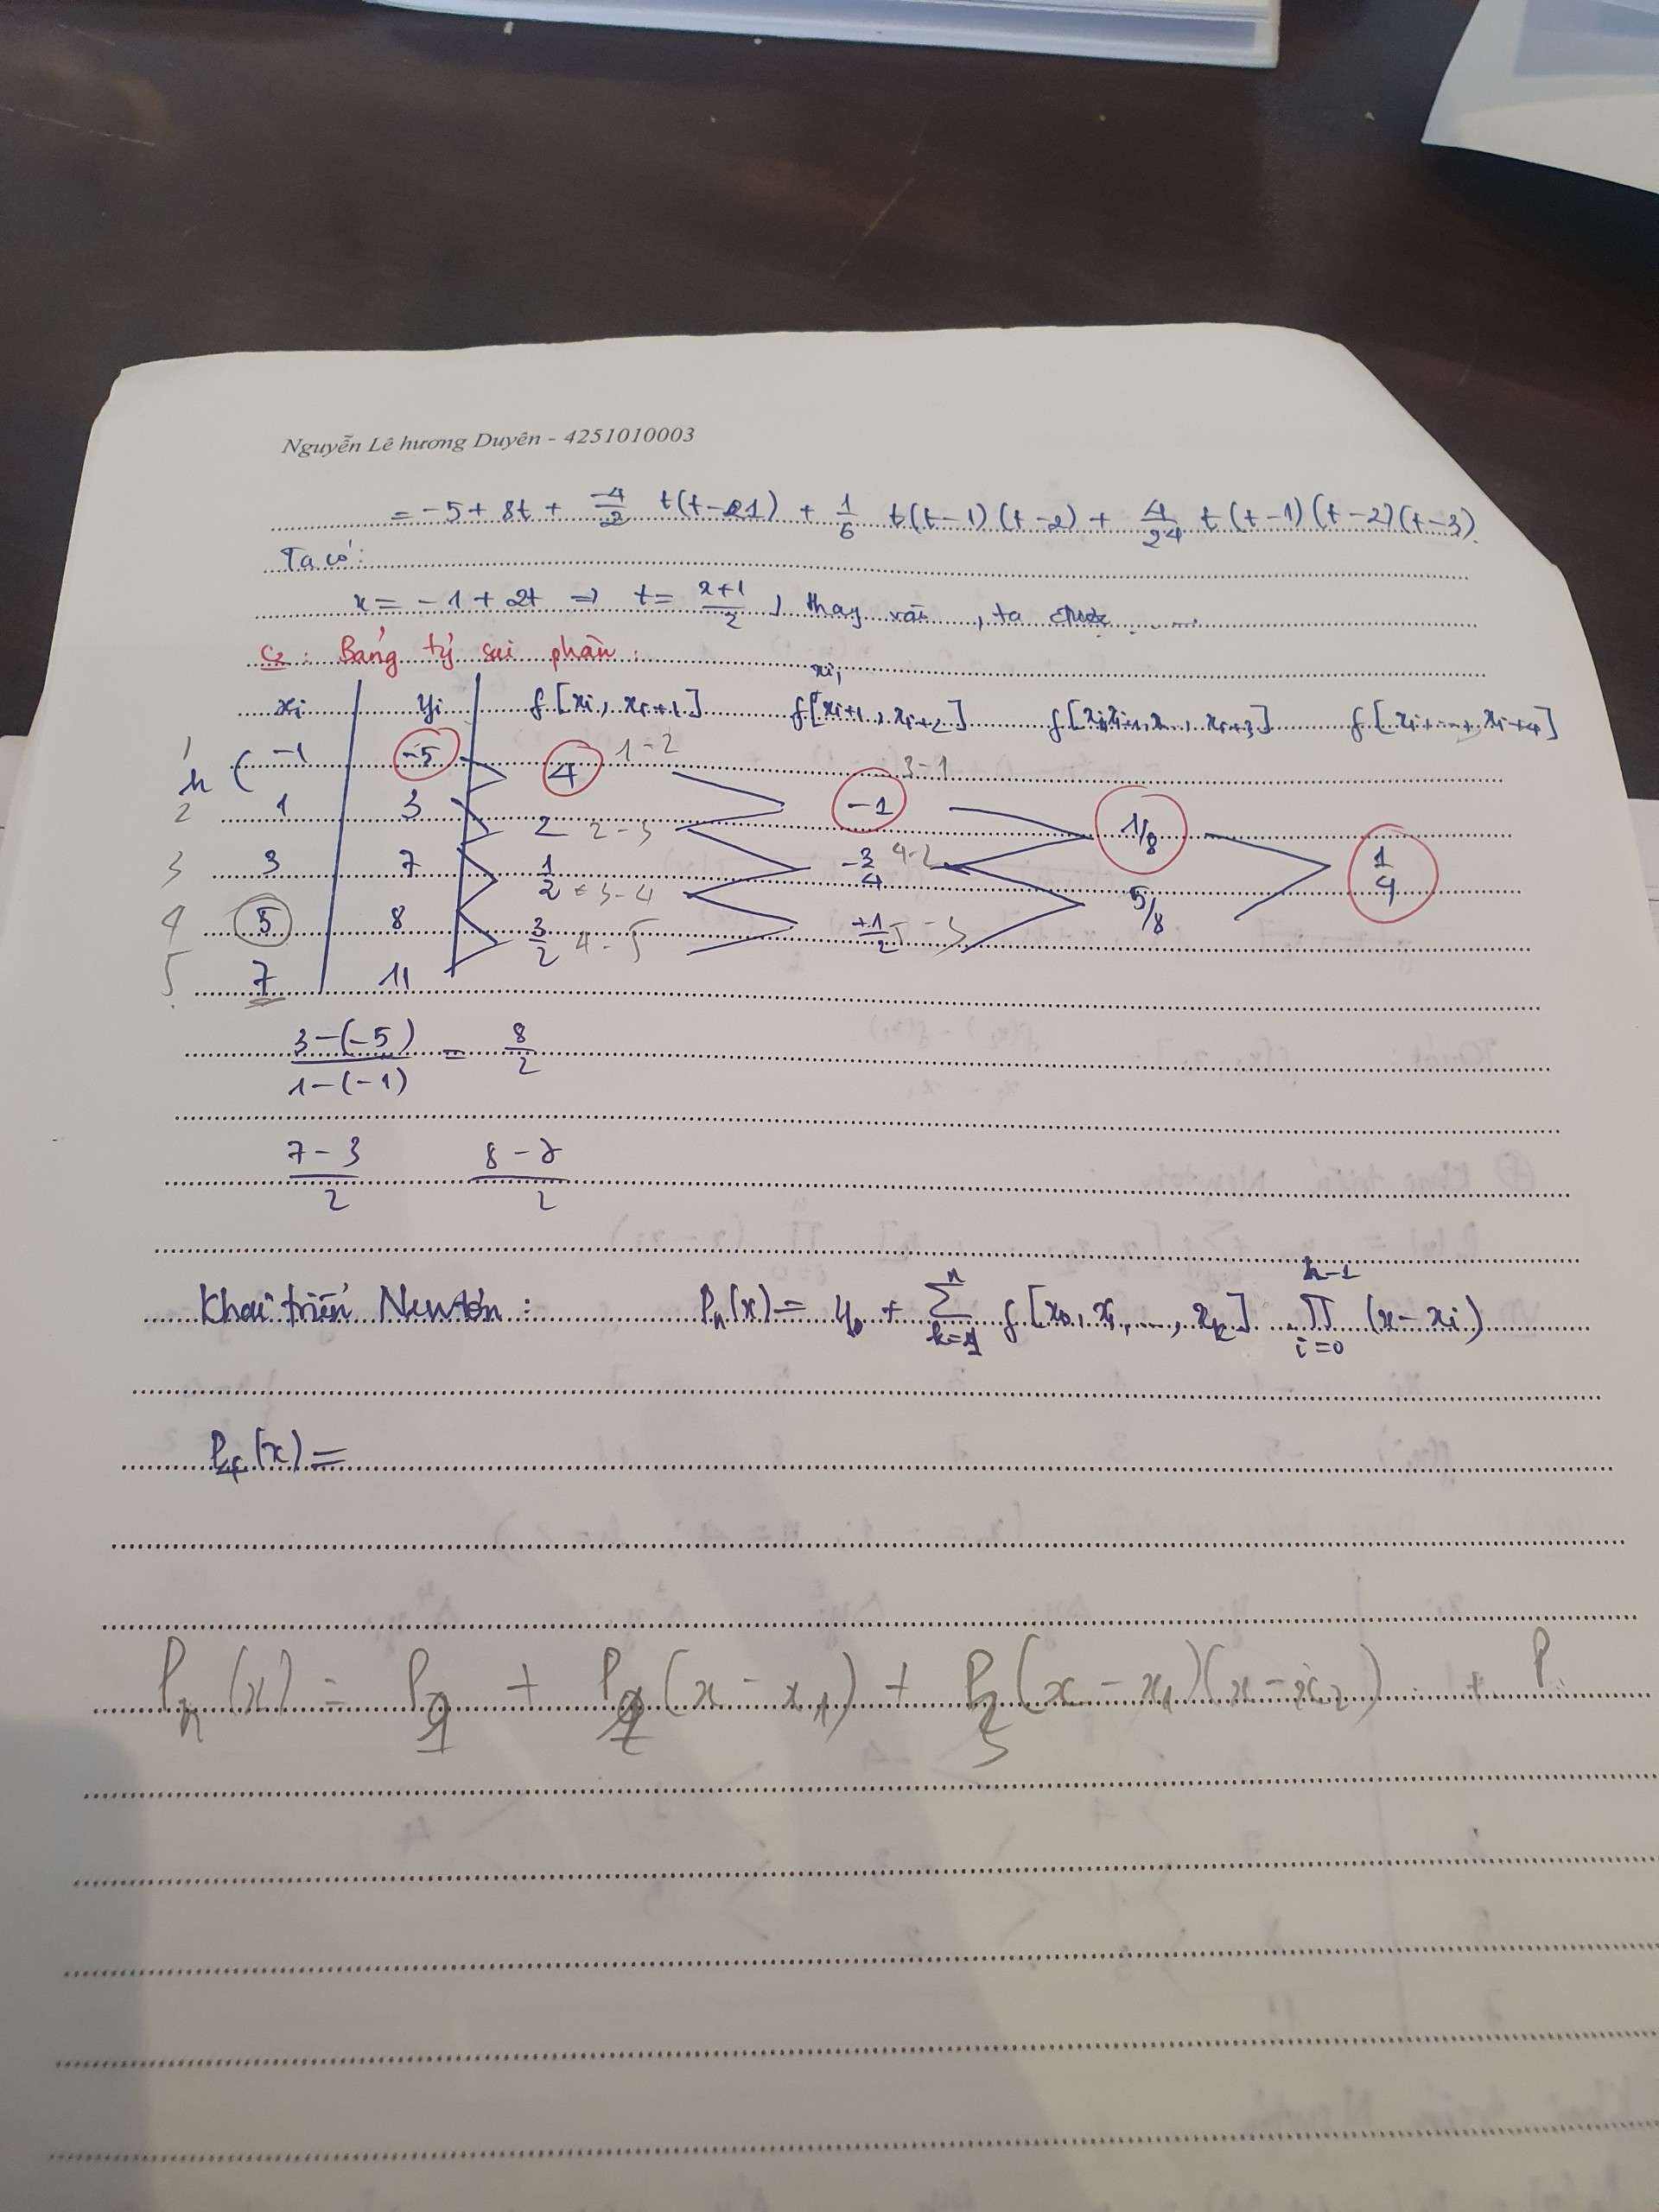 Nguyễn Lê hương Duyên - 4251010003
= -5 + 8t + -4/2 t(t-1) + 1/6 t(t-1)(t-2) + 4/24 t(t-1)(t-2)(t-3)
Ta có:
x = -1 + 2t => t = x+1/2, thay vào, ta được
C2: Bảng tỷ sai phân:
xi yi f[xi, xi+1] f[xi, xi+1, xi+2] f[xi, xi+1, ..., xi+3] f[xi+...+ xi+4]
1 h ( -1 -5 4 1-2 3-1
2 1 3 2 2-3 -1 1/8
3 3 7 1/2 3-4 -3/4 4-2 1/4
4 5 8 3/2 4-5 +1/2 5-3 5/8
5 7 11
3-(-5)/1-(-1) = 8/2
7-3/2 8-7/2
Khai triển Newtơn: Pn(x) = y0 + ∑ k=1 n f[x0, x1, ..., xk] ∏ i=0 k-1 (x - xi)
P4(x) =
Pn(x) = P1 + P2(x - x1) + P3(x - x1)(x - x2) + P